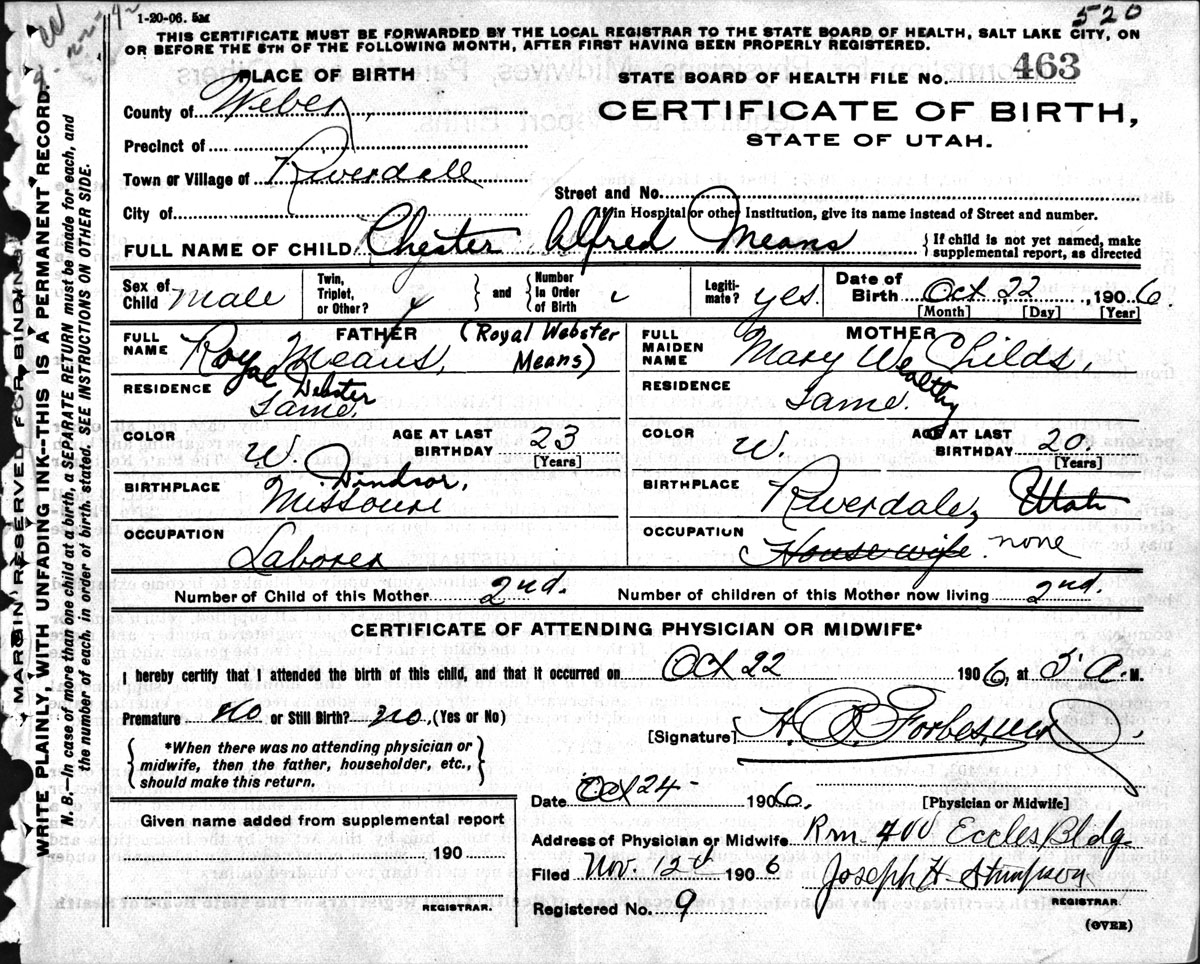 1-20-06. 5M
520
THIS CERTIFICATE MUST BE FORWARDED BY THE LOCAL REGISTRAR TO THE STATE BOARD OF HEALTH, SALT LAKE CITY, ON
OR BEFORE THE 5TH OF THE FOLLOWING MONTH, AFTER FIRST HAVING BEEN PROPERLY REGISTERED.
PLACE OF BIRTH
STATE BOARD OF HEALTH FILE No. 463
County of Weber,
CERTIFICATE OF BIRTH,
STATE OF UTAH.
Precinct of
Town or Village of Riverdale
Street and No.
City of
If in Hospital or other Institution, give its name instead of Street and number.
FULL NAME OF CHILD Chester Alfred Means
{If child is not yet named, make
supplemental report, as directed
Sex of Child Male
Twin, Triplet, or Other?
} and {
Number in Order of Birth
Legitimate? yes.
Date of Birth Oct 22, 1906.
[Month] [Day] [Year]
FATHER
FULL NAME Roy Means, (Royal Webster Means)
Royal Webster
MOTHER
FULL MAIDEN NAME Mary W Childs,
Wealthy
RESIDENCE Same.
RESIDENCE Same.
COLOR W.
AGE AT LAST BIRTHDAY 23
[Years]
COLOR W.
AGE AT LAST BIRTHDAY 20
[Years]
BIRTHPLACE Windsor, Missouri
BIRTHPLACE Riverdale, Utah
OCCUPATION Laborer
OCCUPATION Housewife none
Number of Child of this Mother 2nd.
Number of children of this Mother now living 2nd.
CERTIFICATE OF ATTENDING PHYSICIAN OR MIDWIFE*
I hereby certify that I attended the birth of this child, and that it occurred on Oct 22 1906, at 5 A. M.
Premature no or Still Birth? no, (Yes or No)
[Signature] H. B. Forbes, MD
{*When there was no attending physician or
midwife, then the father, householder, etc.,
should make this return.}
Date Oct 24 1906.
[Physician or Midwife]
Given name added from supplemental report
Address of Physician or Midwife Rm. 400 Eccles Bldg.
190
Filed Nov. 12th 1906
Joseph H Stimpson
REGISTRAR.
REGISTRAR.
Registered No. 9
(OVER)
MARGIN RESERVED FOR BINDING
WRITE PLAINLY, WITH UNFADING INK--THIS IS A PERMANENT RECORD.
N. B.--In case of more than one child at a birth, a SEPARATE RETURN must be made for each, and
the number of each, in order of birth, stated. SEE INSTRUCTIONS ON OTHER SIDE.